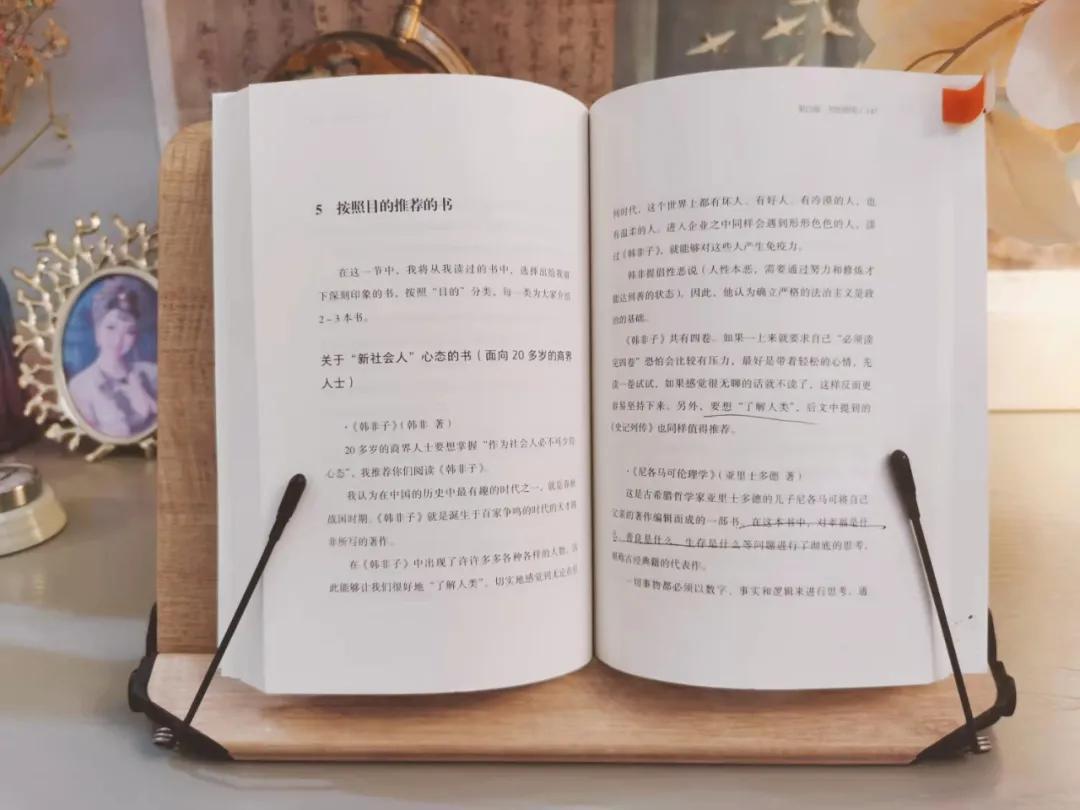 5 按照目的推荐的书
在这一节中，我将从我读过的书中，选择出给我留
下深刻印象的书，按照“目的”分类，每一类为大家介绍
2-3本书。
关于“新社会人”心态的书（面向20多岁的商界
人士）
·《韩非子》（韩非 著）
20多岁的商界人士要想掌握“作为社会人必不可少的
心态”，我推荐你们阅读《韩非子》。
我认为在中国的历史中最有趣的时代之一，就是春秋
战国时期。《韩非子》就是诞生于百家争鸣的时代的天才韩
非所写的著作。
在《韩非子》中出现了许许多多各种各样的人物，因
此能够让我们很好地“了解人类”，切实地感觉到无论在任
147
何时代，这个世界上都有坏人、有好人、有冷漠的人，也
有温柔的人。进入企业之中同样会遇到形形色色的人，读
过《韩非子》，就能够对这些人产生免疫力。
韩非提倡性恶说（人性本恶，需要通过努力和修炼才
能达到善的状态），因此，他认为确立严格的法治主义是政
治的基础。
《韩非子》共有四卷。如果一上来就要求自己“必须读
完四卷”恐怕会比较有压力，最好是带着轻松的心情，先
读一卷试试，如果感觉很无聊的话就不读了，这样反而更
容易坚持下来。另外，要想“了解人类”，后文中提到的
《史记列传》也同样值得推荐。
·《尼各马可伦理学》（亚里士多德 著）
这是古希腊哲学家亚里士多德的儿子尼各马可将自己
父亲的著作编辑而成的一部书。在这本书中，对幸福是什
么、善良是什么、生存是什么等问题进行了彻底的思考，
堪称古经典籍的代表作。
一切事物都必须以数字、事实和逻辑来进行思考，通